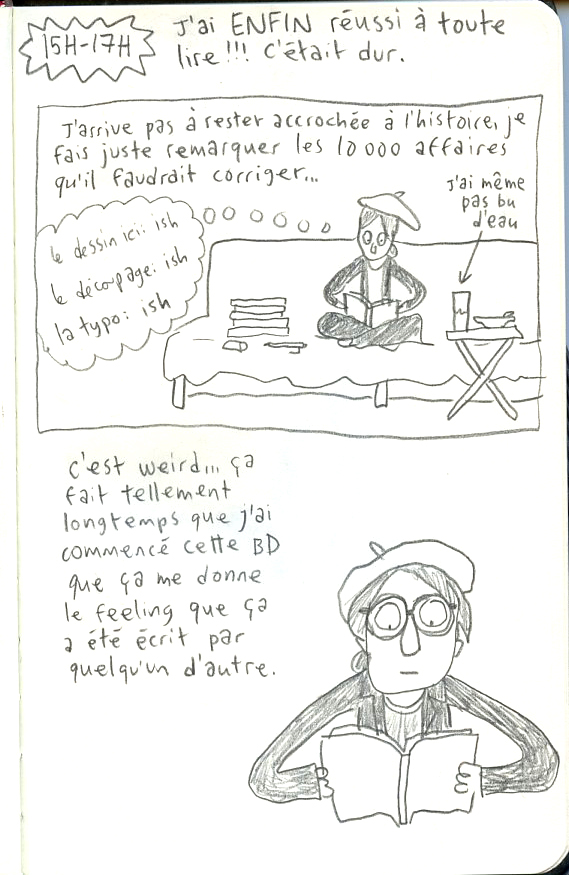 15H-17H
J'ai ENFIN réussi à toute
lire!!! C'était dur.
J'arrive pas à rester accrochée à l'histoire, je
fais juste remarquer les 10 000 affaires
qu'il faudrait corriger...
J'ai même
pas bu
d'eau
le dessin ici: ish
le découpage: ish
la typo: ish
C'est weird... ça
fait tellement
longtemps que j'ai
commencé cette BD
que ça me donne
le feeling que ça
a été écrit par
quelqu'un d'autre.